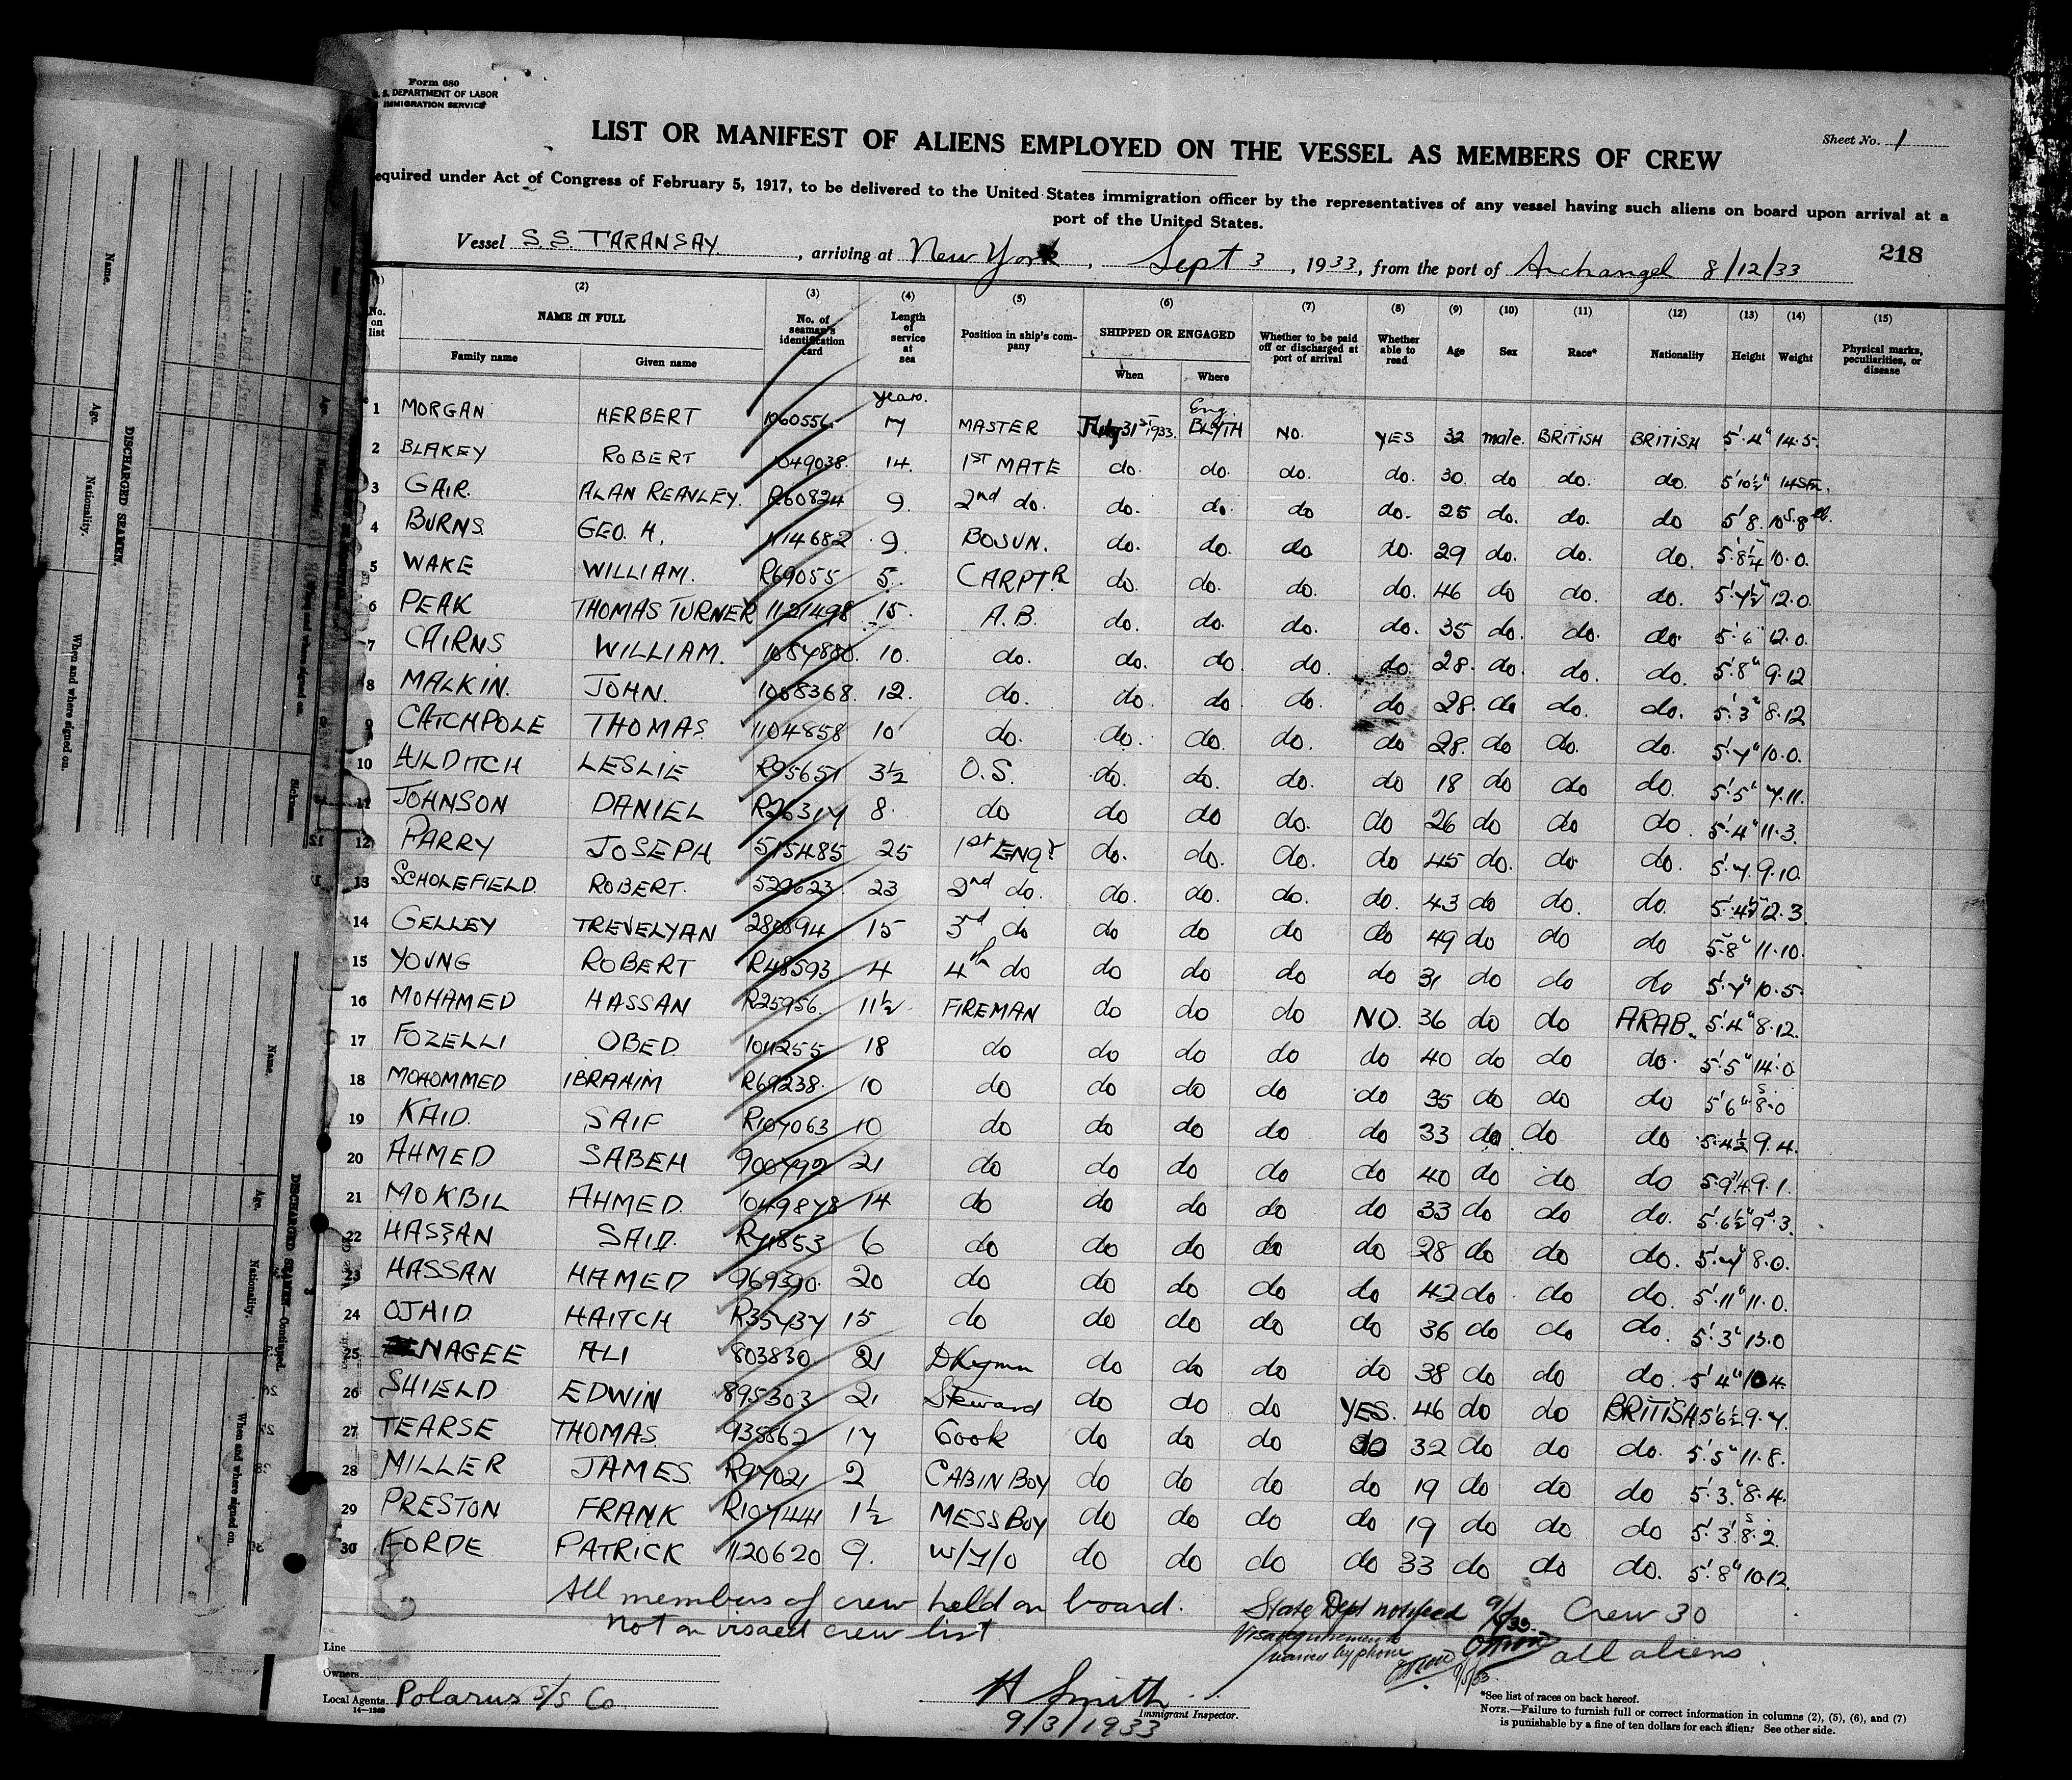 Form 680
U. S. DEPARTMENT OF LABOR
IMMIGRATION SERVICE
Sheet No. 1
LIST OR MANIFEST OF ALIENS EMPLOYED ON THE VESSEL AS MEMBERS OF CREW
equired under Act of Congress of February 5, 1917, to be delivered to the United States immigration officer by the representatives of any vessel having such aliens on board upon arrival at a
port of the United States.
218
Vessel S.S. TARANSAY, arriving at New York, Sept 3, 1933, from the port of Archangel 8/12/33
(1) (2) (3) (4) (5) (6) (7) (8) (9) (10) (11) (12) (13) (14) (15)
No. on list NAME IN FULL Family name Given name No. of seaman's identification card Length of service at sea Position in ship's company SHIPPED OR ENGAGED When Where Whether to be paid off or discharged at port of arrival Whether able to read Age Sex Race* Nationality Height Weight Physical marks, peculiarities, or disease
years. Eng.
1 MORGAN HERBERT 1060556 7 MASTER July 31st 1933. BLYTH NO. YES 32 male. BRITISH BRITISH 5'.4" 14.5.
2 BLAKEY ROBERT 1049038. 14. 1ST MATE do. do. do. do. 30. do do. do. 5'10½" 14
3 GAIR. ALAN REAVLEY. R60824 9. 2nd do. do. do. do do. 25 do. do. do 5'8. 10S.8lb.
4 BURNS. GEO. H. 1114682 9. BOSUN. do. do. do do. 29 do. do. do. 5'.8¼" 10.0.
5 WAKE WILLIAM. R69055 5. CARPTR do. do. do. do. 46 do do. do. 5'.7½" 12.0.
6 PEAK THOMAS TURNER 1121498 15. A.B. do. do. do. do. 35 do. do. do 5'.6" 12.0.
7 CAIRNS WILLIAM. 1087880. 10. do. do. do. do. do. 28. do. do. do. 5'.8" 9.12
8 MALKIN. JOHN. 1068368. 12. do. do. do. do. do 28. do do. do. 5'.3" 8.12
9 CATCHPOLE THOMAS 1104858 10 do. do. do. do. do 28. do do. do. 5'.7" 10.0.
10 HILDITCH LESLIE R95651 3½ O.S. do. do. do. do 18 do do do. 5'.5" 7.11.
11 JOHNSON DANIEL R26317 8. do do do do. do 26 do do do. 5'.4" 11.3.
12 PARRY JOSEPH 515485 25 1st ENGr do. do. do. do 45 do. do. do. 5'.7. 9.10.
13 SCHOLEFIELD. ROBERT. 529623 23 2nd do. do. do. do. do. 43 do do. do. 5'.4½" 12.3.
14 GELLEY TREVELYAN 280894 15 3rd do do do do do 49 do do do 5'.8" 11.10.
15 YOUNG ROBERT R48593 4 4th do do do do do 31 do do do 5'.7" 10.5.
16 MOHAMED HASSAN R25956. 11½ FIREMAN do do do NO. 36 do do ARAB. 5'.4" 8.12.
17 FOZELLI OBED. 1011255 18 do do do do do 40 do do do. 5'.5" 14.0
18 MOHOMMED IBRAHIM R69238. 10 do do do do do 35 do do do 5'6" 8.0
19 KAID. SAIF R107063 10 do do do do do 33 do do do 5.4½ 9.4.
20 AHMED SABEH 900792 21 do do do do do 40 do do do 5.9¾ 9.1.
21 MOKBIL AHMED. 1049878 14 do do do do do 33 do do do. 5'.6½" 9.3.
22 HASSAN SAID. R71853 6 do do do do do 28 do do do. 5'.7" 8.0.
23 HASSAN HAMED 969390. 20 do do do do do 42 do do do. 5'.11" 11.0.
24 OJAID HAITCH R35737 15 do do do do do 36 do do do. 5'.3" 13.0
25 NAGEE ALI 803830. 21 DKyman do do do do 38 do do do. 5'4" 10.4.
26 SHIELD EDWIN 895303 21 Steward do do do YES. 46 do do BRITISH 5'6½ 9.7.
27 TEARSE THOMAS. 935862 17 Cook do do do do 32 do do do. 5'.5" 11.8.
28 MILLER JAMES. R97021 2 CABIN BOY do do do do 19 do do do 5'.3." 8.4.
29 PRESTON FRANK R107441 1½ MESSBOY do do do do 19 do do. do 5'.3" 8.2.
30 FORDE PATRICK 1120620 9. W/T/O do do do do 33 do do do. 5'.8" 10.12.
All members of crew held on board.
Not on visaed crew list
State Dept notified
Visa requirements
waived by phone
Crew 30
all aliens.
Line
Owners
Local Agents Polarus S/S Co
14—1240
H Smith
Immigrant Inspector.
9/3/1933
*See list of races on back hereof.
NOTE.—Failure to furnish full or correct information in columns (2), (5), (6), and (7)
is punishable by a fine of ten dollars for each alien. See other side.
DISCHARGED SEAMEN.
Name.
Age.
Nationality.
When and where signed on.
DISCHARGED SEAMEN—Continued.
Name.
Age.
Nationality.
When and where signed on.